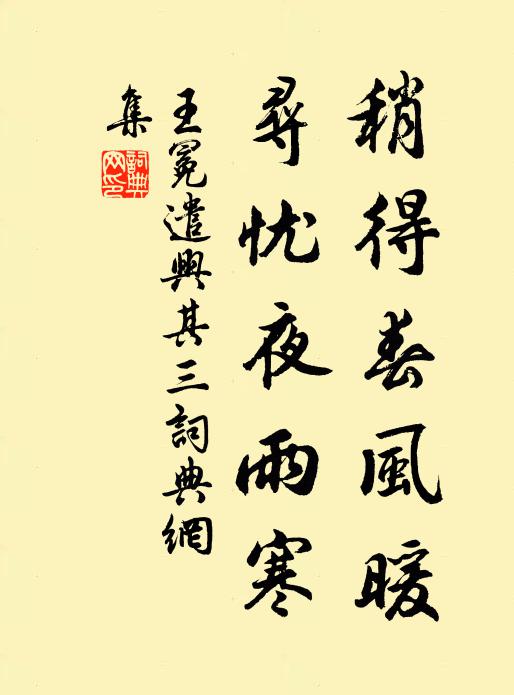 稍得春風暖
尋忧夜雨寒
王冕遣興其三詞典網
集
詞典
网印